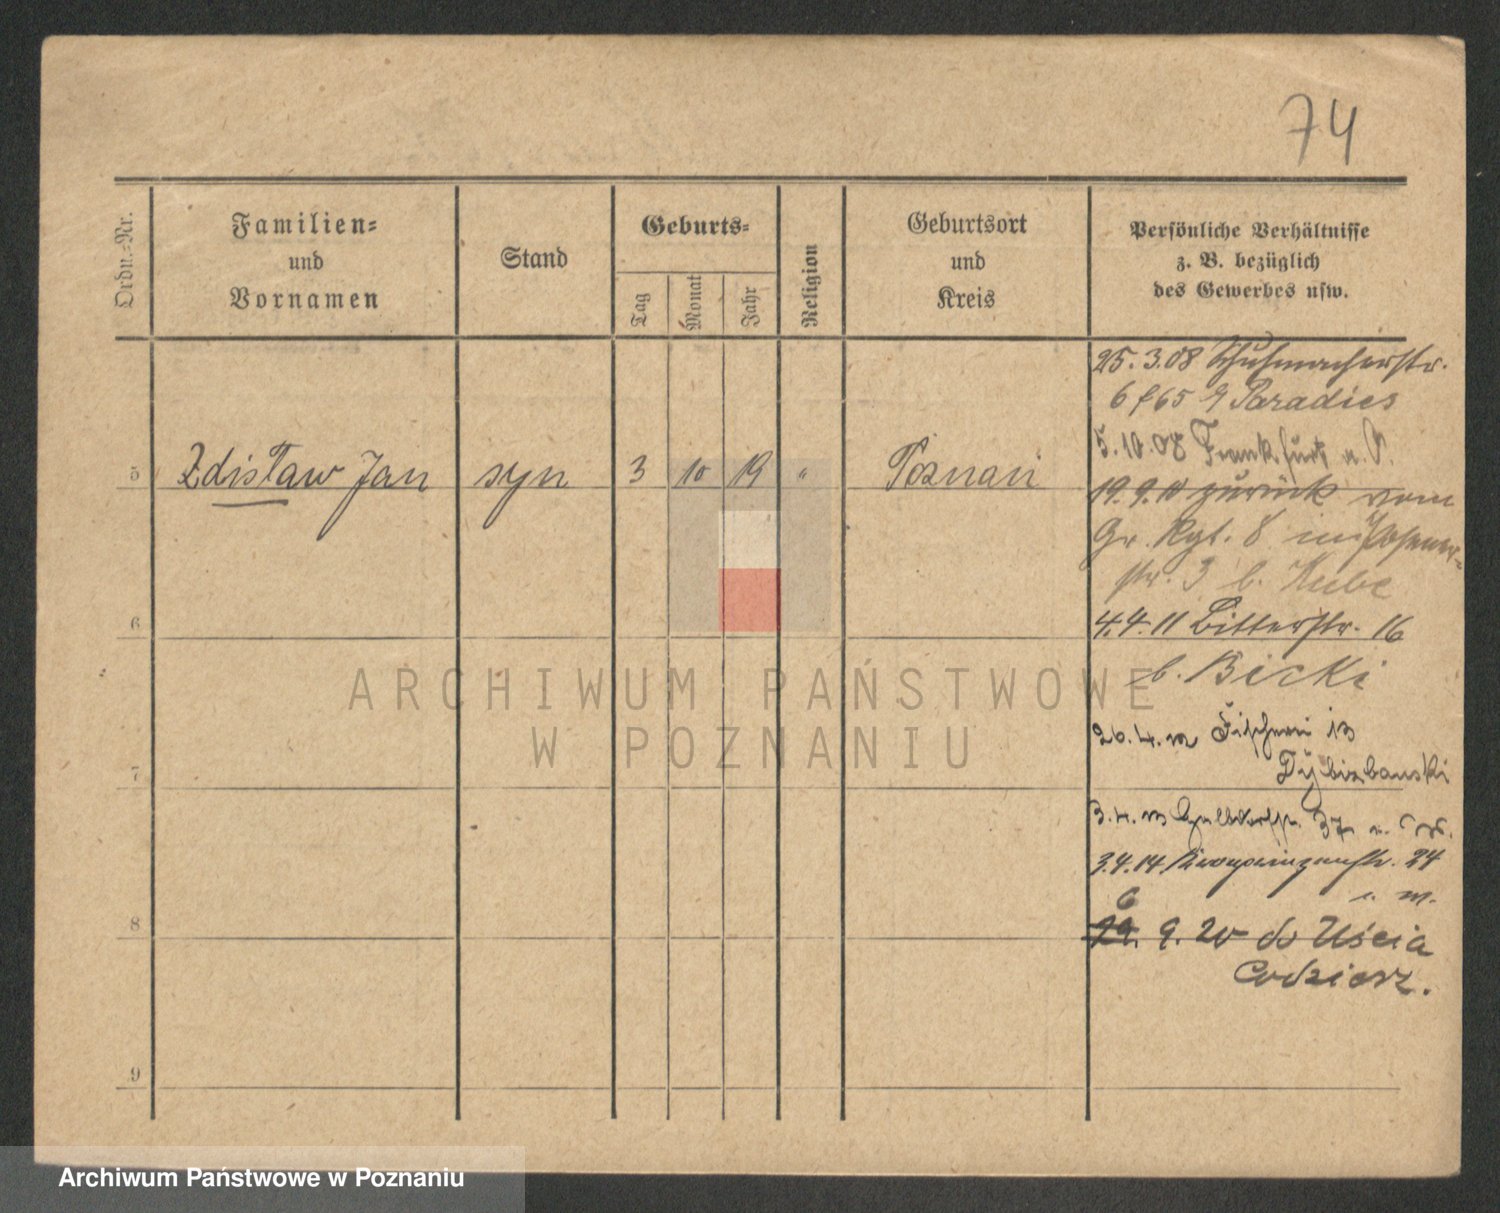 74
Ordn.-Nr.
Familien-
und
Vornamen
Stand
Geburts-
Tag
Monat
Jahr
Religion
Geburtsort
und
Kreis
Persönliche Verhältnisse
z. B. bezüglich
des Gewerbes usw.
25. 3. 08 Schuhmacherstr.
6 Paradies
5. 10. 08 Frankfurt a. O.
5 Zdisław Jan syn 3 10 19 " Poznań
19. 9. 10 zurück vom
Gr. Rgt. 8 in Posener-
str. 3 b. Kube
6
4. 4. 11 Bitterstr. 16
b. Bicki
ARCHIWUM PAŃSTWOWE
W POZNANIU
26. 4. 12 Fischerei 13
7
Dybizbanski
3. 4. 13 37
3. 4. 14 Kronprinzenstr. 24
6
8
9. 20 do Uścia
9
Archiwum Państwowe w Poznaniu